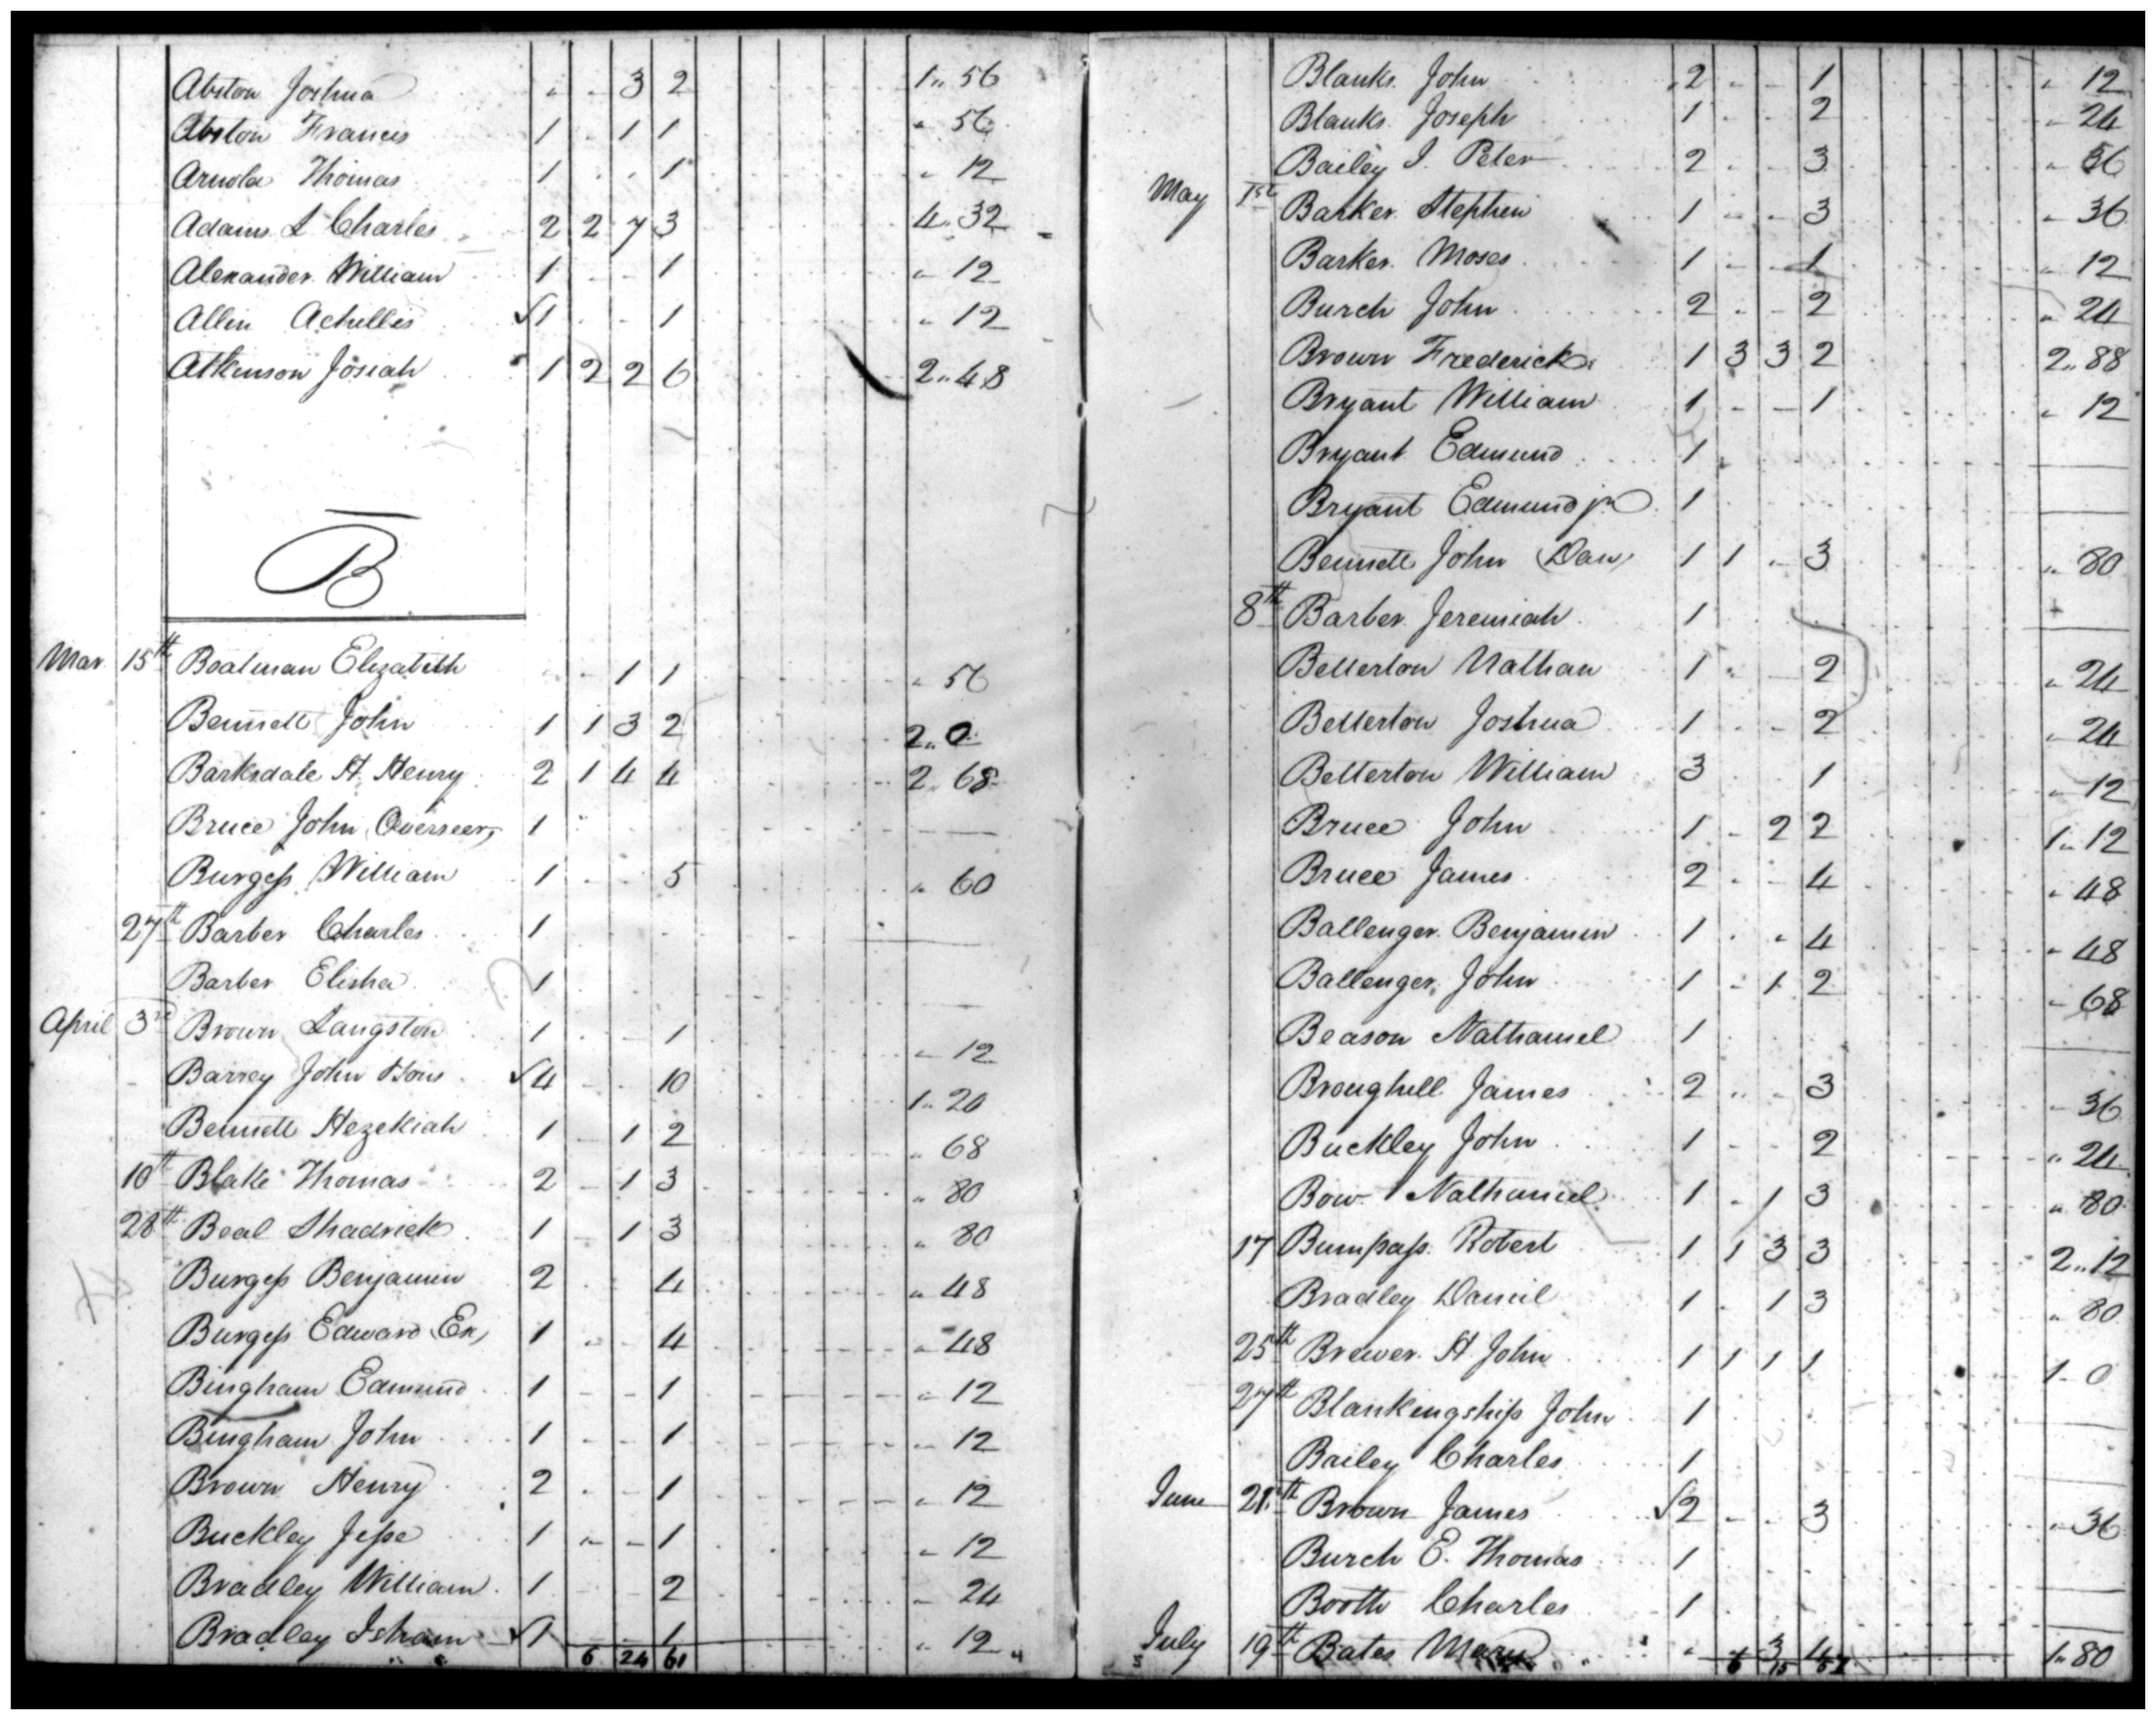 Abston Joshua " - 3 2 1" 56
Abston Francis 1 - 1 1 " 56
Arnold Thomas 1 - - 1 " 12
Adams L Charles 2 2 7 3 4" 32
Alexander William 1 - - 1 " 12
Allin Achilles √1 - - 1 " 12
Atkinson Josiah 1 2 2 6 2" 48
B
Mar. 15th Boatman Elizabeth - 1 1 " 56
Bennett John 1 1 3 2 2" 0
Barksdale H. Henry 2 1 4 4 2" 68
Bruce John (Overseer) 1
Burgess William 1 - - 5 " 60
27th Barber Charles 1
Barber Elisha 1
April 3rd Brown Langston 1 - - 1 " 12
Barrey John Sons √4 - - 10 1" 20
Bennett Hezekiah 1 - 1 2 " 68
10th Blake Thomas 2 - 1 3 " 80
28th Beal Shadrick 1 - 1 3 " 80
Burgess Benjamin 2 - - 4 " 48
Burgess Edward (Ex) 1 - - 4 " 48
Bingham Edmund 1 - - 1 " 12
Bingham John 1 - - 1 " 12
Brown Henry 2 - - 1 " 12
Buckley Jesse 1 - - 1 " 12
Bradley William 1 - - 2 " 24
Bradley Isham √1 - - 1 " 12
6 24 61
Blanks John 2 - - 1 " 12
Blanks Joseph 1 - - 2 " 24
Bailey I. Peter 2 - - 3 " 36
May 1st Barker Stephen 1 - - 3 " 36
Barker Moses 1 - - 1 " 12
Burch John 2 - - 2 " 24
Brown Frederick 1 3 3 2 2" 88
Bryant William 1 - - 1 " 12
Bryant Edmund 1
Bryant Edmund jr 1
Bennett John (Dan) 1 1 - 3 " 80
8th Barber Jeremiah 1
Betterton Nathan 1 - 2 " 24
Betterton Joshua 1 - - 2 " 24
Betterton William 3 1 " 12
Bruce John 1 - 2 2 1" 12
Bruce James 2 - - 4 " 48
Ballenger Benjamin 1 - - 4 " 48
Ballenger John 1 - 1 2 " 68
Beason Nathaniel 1
Broughill James 2 - - 3 " 36
Buckley John 1 - - 2 " 24
Bow Nathaniel 1 - 1 3 " 80
17 Bumpass Robert 1 1 3 3 2" 12
Bradley Daniel 1 - 1 3 " 80
25th Brewer H. John 1 1 1 1 1" 0
27th Blankingship John 1
Bailey Charles 1
June 21th Brown James √2 - - 3 " 36
Burch E. Thomas 1
Booth Charles 1
July 19th Bates Mary " 3 4 1" 80
6 15